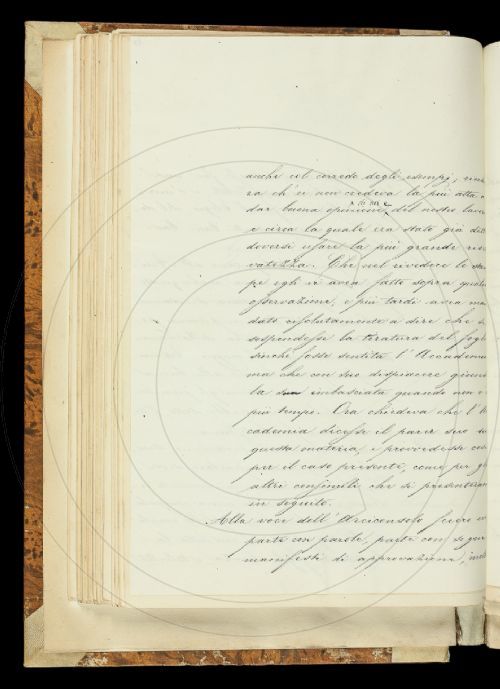 anche col corredo degli esempj,
za ch'ei non credeva la più atta a
dar buona opinione del nostro
e circa la quale era stato già
doversi usare la più grande
vatezza. Che nel rivedere le
pe egli vi avea fatto sopra
osservazione, e più tardi avea
dato risolutamente a dire che
sospendesse la tiratura del
finchè fosse sentita l'Accademia
ma che con suo dispiacere
la imbasciata quando non
più tempo. Ora chiedeva che l'
cademia dicesse il parer suo
questa materia, e provvedesse
per il caso presente, come per
altri consimili che si
in seguito.
Alla voce dell'Arciconsolo fecero
parte con parole, parte con
manifesti di approvazione,